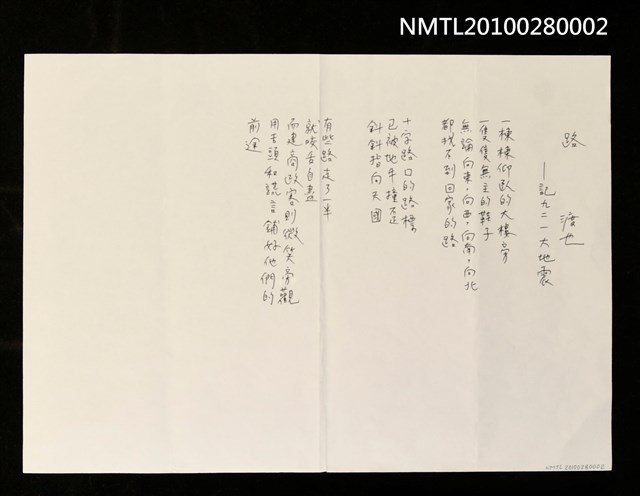 NMTL20100280002
路
渡也
—記九二一大地震
一棟棟仰臥的大樓旁
一隻隻無主的鞋子
無論向東,向西,向南,向北
都找不到回家的路
十字路口的路標
已被地牛撞歪
斜斜指向天國
有些路走了一半
就咬舌自盡
而建商政客則微笑旁觀
用舌頭和謊言鋪好他們的
前途
NMTL 20100280002